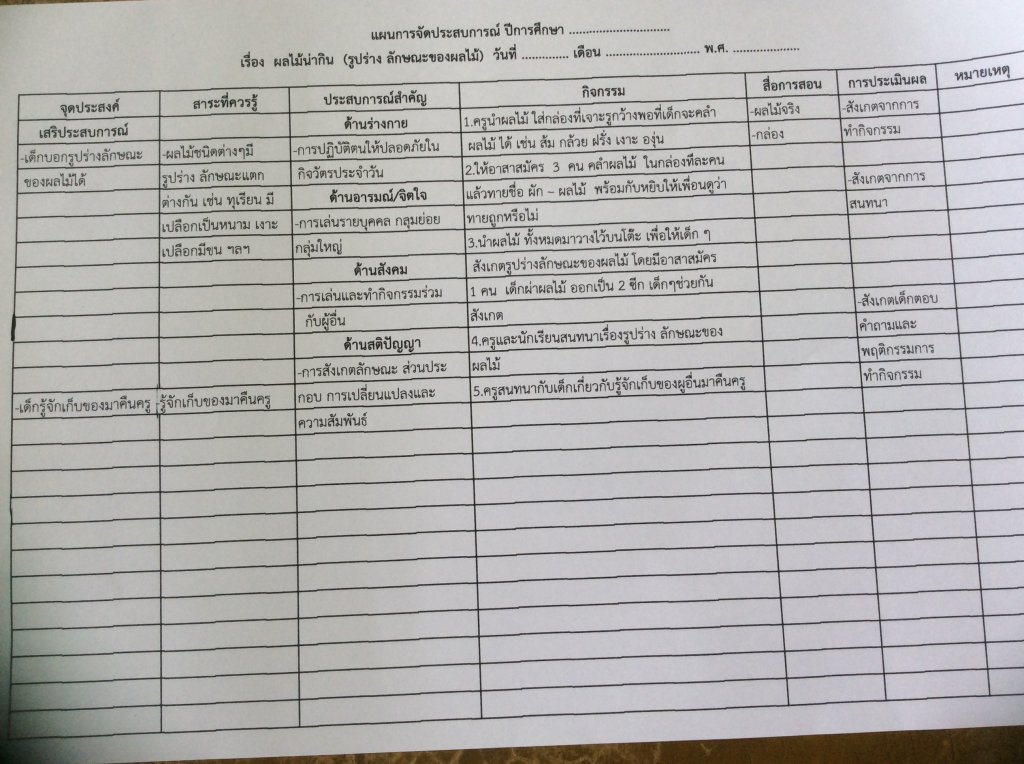 แผนการจัดประสบการณ์ ปีการศึกษา ..............................
เรื่อง ผลไม้น่ากิน (รูปร่าง ลักษณะของผลไม้) วันที่ .............. เดือน ............................ พ.ศ. ....................
จุดประสงค์
เสริประสบการณ์
-เด็กบอกรูปร่างลักษณะ
ของผลไม้ได้
-เด็กรู้จักเก็บของมาคืนครู
สาระที่ควรรู้
-ผลไม้ชนิดต่างๆมี
รูปร่าง ลักษณะแตก
ต่างกัน เช่น ทุเรียน มี
เปลือกเป็นหนาม เงาะ
เปลือกมีขน ฯลฯ
-รู้จักเก็บของมาคืนครู
ประสบการณ์สำคัญ
ด้านร่างกาย
-การปฏิบัติตนให้ปลอดภัยใน
กิจวัตรประจำวัน
ด้านอารมณ์/จิตใจ
-การเล่นรายบุคคล กลุ่มย่อย
กลุ่มใหญ่
ด้านสังคม
-การเล่นและทำกิจกรรมร่วม
กับผู้อื่น
ด้านสติปัญญา
-การสังเกตลักษณะ ส่วนประ
กอบ การเปลี่ยนแปลงและ
ความสัมพันธ์
กิจกรรม
1.ครูนำผลไม้ ใส่กล่องที่เจาะรูกว้างพอที่เด็กจะคลำ
ผลไม้ ได้ เช่น ส้ม กล้วย ฝรั่ง เงาะ องุ่น
2.ให้อาสาสมัคร 3 คน คลำผลไม้ ในกล่องทีละคน
แล้วทายชื่อ ผัก – ผลไม้ พร้อมกับหยิบให้เพื่อนดูว่า
ทายถูกหรือไม่
3.นำผลไม้ ทั้งหมดมาวางไว้บนโต๊ะ เพื่อให้เด็ก ๆ
สังเกตรูปร่างลักษณะของผลไม้ โดยมีอาสาสมัคร
1 คน เด็กผ่าผลไม้ ออกเป็น 2 ซีก เด็กๆช่วยกัน
สังเกต
4.ครูและนักเรียนสนทนาเรื่องรูปร่าง ลักษณะของ
ผลไม้
5.ครูสนทนากับเด็กเกี่ยวกับรู้จักเก็บของผูอื่นมาคืนครู
สื่อการสอน
-ผลไม้จริง
-กล่อง
การประเมินผล
-สังเกตจากการ
ทำกิจกรรม
-สังเกตจากการ
สนทนา
-สังเกตเด็กตอบ
คำถามและ
พฤติกรรมการ
ทำกิจกรรม
หมายเหตุ